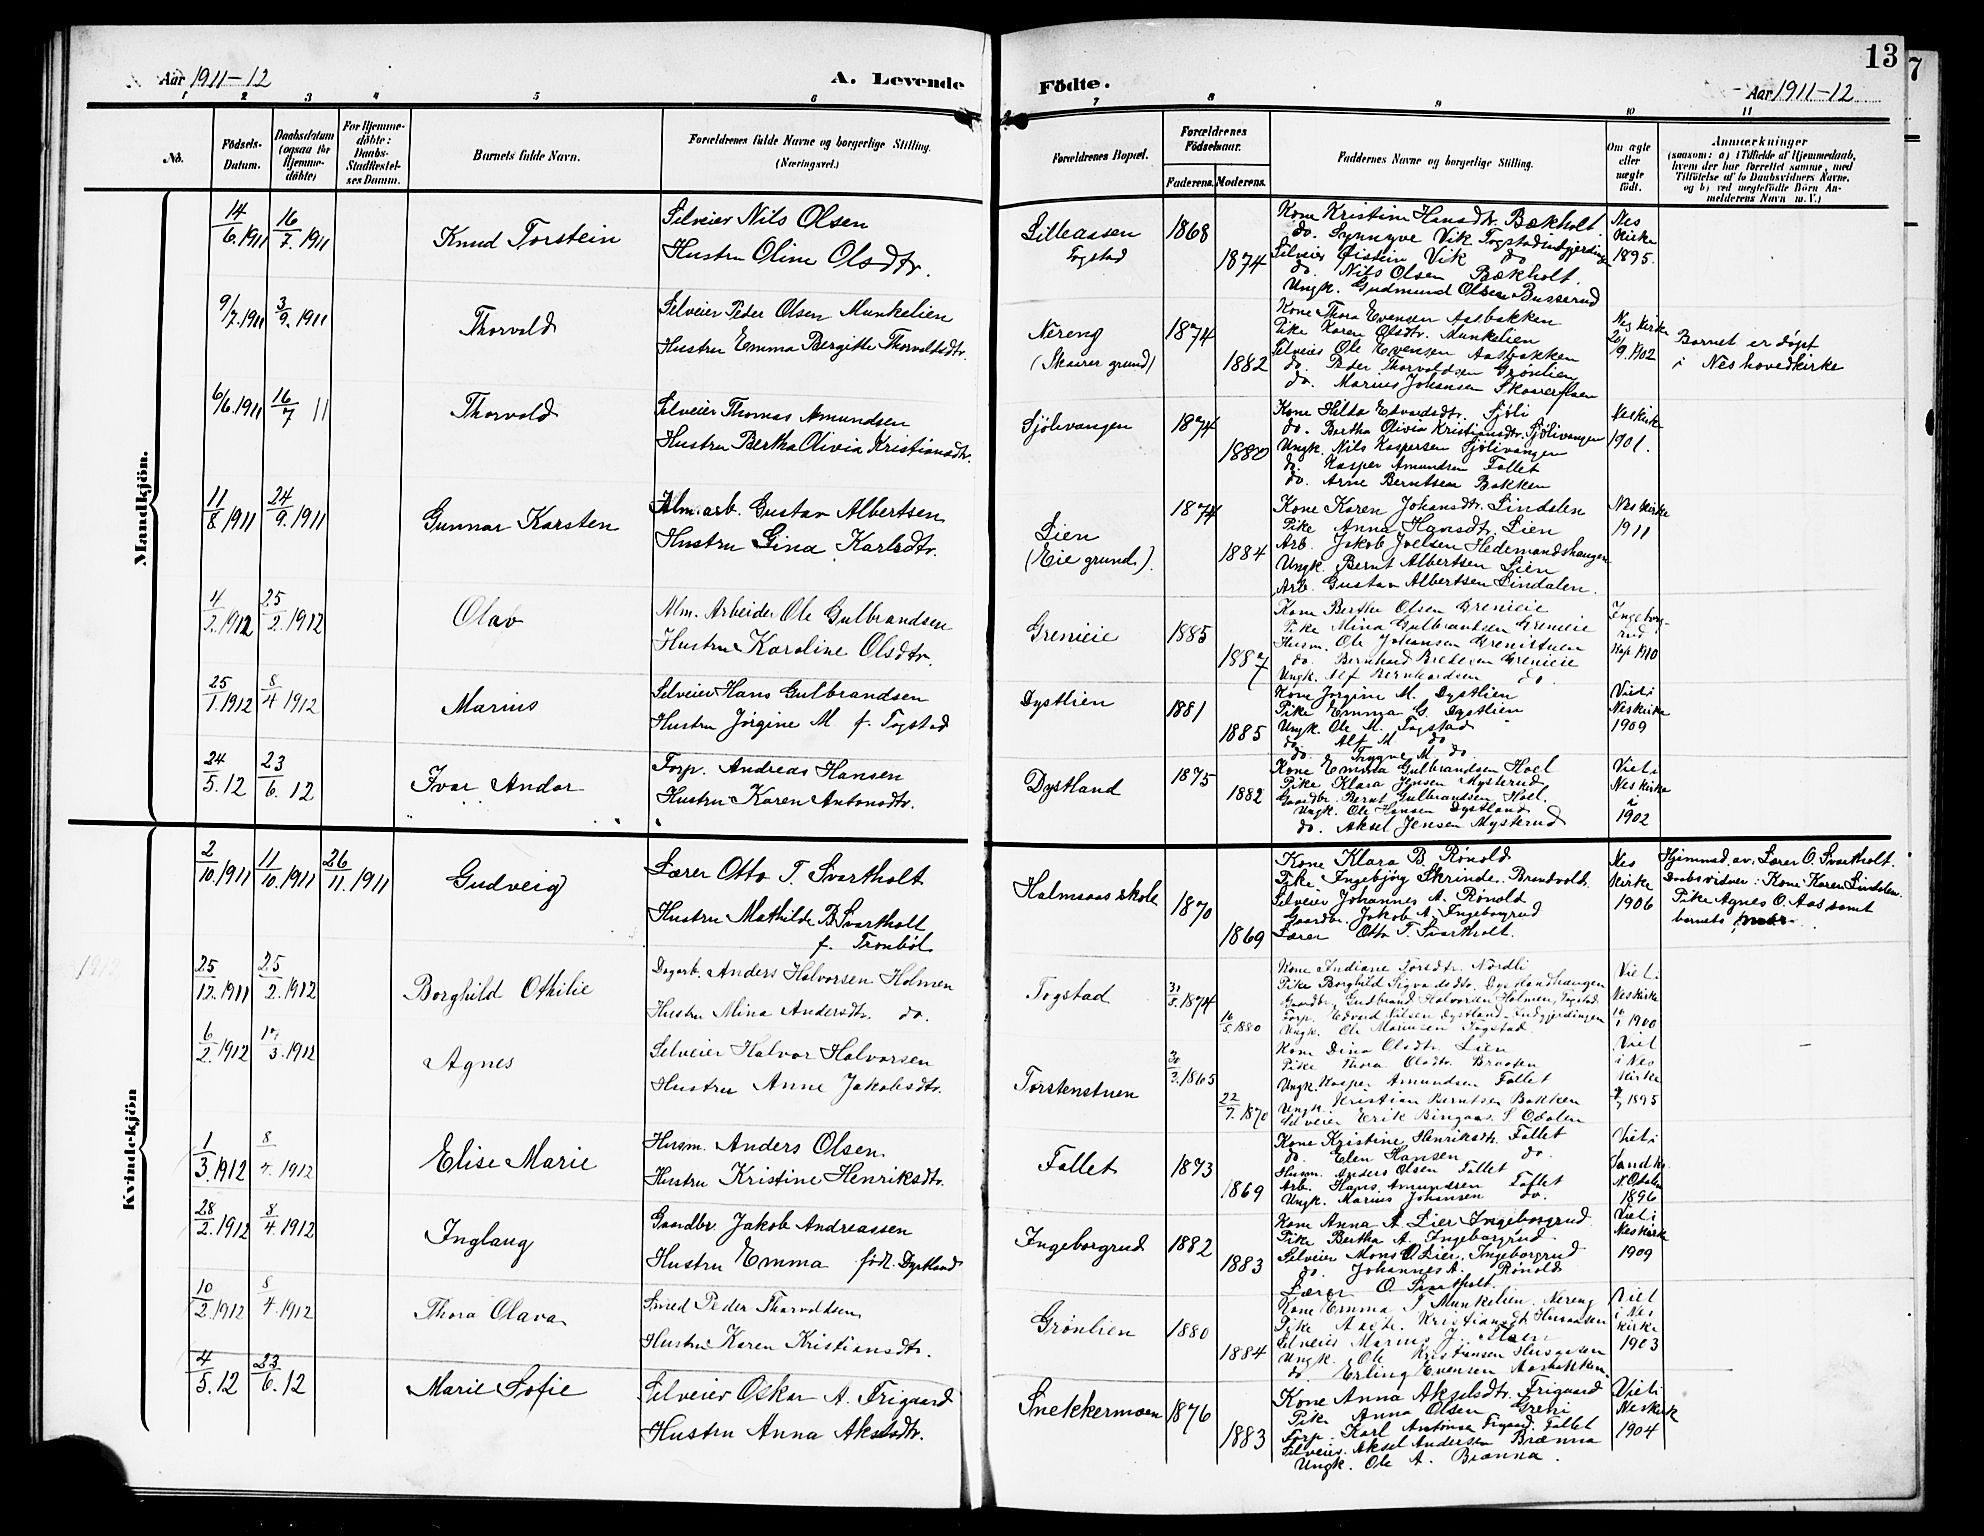 13
7
Aar 1911-12
A. Levende
Födte.
Aar 1911-12
1 2 3 4 5 6
7 8 9 10 11
No.
Födsels-Datum.
Daabsdatum (ogsaa for Hjemme-döbte)
For Hjemme-döbte: Daabs-Stadfæstel-ses Datum.
Barnets fulde Navn.
Forældrenes fulde Navne og borgerlige Stilling.
(Næringsvei.)
Forældrenes Bopæl.
Forældrenes Födselsaar.
Faderens. Moderens.
Faddernes Navne og borgerlige Stilling.
Om ægte eller uægte födt.
Anmærkninger
(saasom: a) i Tilfælde af Hjemmedaab,
hvem der har forrettet samme, med
Tilföielse af to Daabsvidners Navne,
og b) ved uægtefödte Börn An-
melderens Navn m. V.)
Mandkjön.
14/6.1911 16/7.1911 Knud Torstein
Selveier Nils Olsen
Hustru Oline Olsdtr.
Lilleaasen
Togstad
1868
1874
Kone Kristine Hansdtr. Bækholt.
do. Synnyve Vik Togstadutgjerdingen
Selveier Øistein Vik do
do. Nils Olsen Bækholt.
Ungk. Gudmund Olsen Busserud
Nes
Kirke
1895.
9/7.1911 3/9.1911 Thorvald
Selveier Peder Olsen Munkelien
Hustru Emma Bergitte Thorvaldsdtr.
Nereng
(Skaarer grund)
1874
1882
Kone Thora Evensen Aasbakken
Pike Karen Olsdtr. Munkelien
Selveier Ole Evensen Aasbakken
do. Peder Thorvaldsen Grønlien
do. Marius Johansen Skaarerflaen
Nes Kirke
20/9.1902
Barnet er døpt
i Nes hovedkirke
6/6.1911 16/7 11 Thorvald
Selveier Thomas Amundsen
Hustru Bertha Olivia Kristiansdtr.
Sjølivangen
1874
1880
Kone Hilda Edvardsdtr. Sjøli
do. Bertha Olivia Kristiansdtr. Sjølivangen
Ungk. Nils Kaspersen Sjølivangen
do. Kasper Amundsen Fallet
do. Arne Berntsen Bakken
Neskirke
1901.
11/8.1911 24/9.1911 Gunnar Karsten
Alm. arb. Gustav Albertsen
Hustru Gina Karlsdtr.
Lien
(Eie grund.).
1874
1884
Kone Karen Johansdtr. Lindalen
Pike Anna Hansdtr. Lien
Arb. Jakob Joelsen Hedemandshaugen
Ungk. Bernt Albertsen Lien
Arb. Gustav Albertsen Lindalen.
Neskirke
1911
4/2.1912 25/2.1912 Olav
Alm. Arbeider Ole Gulbrandsen
Hustru Karoline Olsdtr.
Grenieie
1885
1887
Kone Berthe Olsen Grenieie
Pike Mina Gulbrandsen Grenieie
Husm. Ole Johansen Grenistuen
do. Bernhard Pedersen Grenieie
Ungk. Alf Bernhardsen do.
Ingeborg-
rud
Kap. 1910
25/1.1912 8/4 1912 Marius
Selveier Hans Gulbrandsen
Hustru Jørgine M f. Togstad
Dystlien
1881
1885
Kone Jørgine M. Dystlien
Pike Emma G. Dystlien
Ungk. Ole M. Togstad
do Alf M do
do Trygve M do
Viet i
Neskirke
1909
24/5.12 23/6.12 Ivar Andor
Forp. Andreas Hansen
Hustru Karen Antonsdtr.
Dystland
1875
1882
Kone Emma Gulbrandsen Hoel
Pike Klara Jensen Mysterud
Gaardbr. Bernt Gulbrandsen Hoel.
Ungk. Ole Hansen Dystland
do. Aksel Jensen Mysterud
Viet i
Neskirke
i
1902
Kvindekjön
2/10.1911 11/10.1911 26/11.1911 Gudveig
Lærer Otto T. Svartholt
Hustru Mathilde B. Svartholt
f. Tronbøl
Holmsaas skole
1870
1869
Kone Klara B. Rønold
Pike Ingebjørg Skrinde, Brandvold.
Selveier Johannes A. Rønold
Gaardbr. Jakob A. Ingeborgrud
Lærer Otto T. Svartholt.
Nes
Kirke
1906
Hjemmed. av: Lærer O. Svartholt.
Daabsvidner: Kone Karen Lindalen.
Pike Agnes O. Aas samt
barnets mor.
25/12.1911 25/2.1912 Borghild Othilie
Dagarb. Anders Halvorsen Holmen
Hustru Mina Andersdtr. do.
Togstad
31/5.1874
16/5.1880
Kone Indiane Torsdtr. Nordli
Pike Borghild Sigvardsdtr. Dystlandhaugen
Gaardbr. Gudbrand Halvorsen Holmen, Togstad
Forp. Edvard Nilsen Dystland-Indgjerdingen
Ungk. Ole Mariusen Togstad
Viet i
Neskirke
1900
6/2.1912 17/3.1912 Agnes
Selveier Halvor Halvorsen
Hustru Anne Jakobsdtr.
Torstenstuen
30/3.1865
22/7.1870
Kone Dina Olsdtr. Lien
Pike Thora Olsdtr. Braaten
Ungk. Kasper Amundsen Fallet
Ungk. Kristian Berntsen Bakken
Selveier Erik Bingaas. S. Odalen
Viet
i Nes
Kirke
1895
1/3.1912 8/4.1912 Elise Marie
Husm. Anders Olsen
Hustru Kristine Henriksdtr.
Fallet
1873
1869
Kone Kristine Henriksdtr. Fallet
do. Elen Hansen do.
Husm. Anders Olsen Fallet
Arb. Hans Amundsen Fallet
Ungk. Marius Johansen do.
Viet i
Sandk.
N. Odalen
1896
28/2.1912 8/4.1912 Inglaug
Gaardbr. Jakob Andreassen
Hustru Emma født. Dystland
Ingeborgrud
1882
1883
Kone Anna A. Lier Ingeborgrud
Pike Bertha A. Ingeborgrud.
Selveier Mons O. Lier, Ingeborgrud
do. Johannes A. Rønold
Lærer O. Svartholt.
Viet i
Neskirke
1909
10/2.1912 8/4.1912 Thora Olava
Smed Peder Thorvaldsen
Hustru Karen Kristiansdtr.
Grønlien
1880
1884
Kone Emma T. Munkelien, Nereng
Pike Kristiansdtr. Husaasen
Selveier Marius J. Flaen
Ungk. Ole Kristiansen Husaasen
do. Erling Evensen Aasbakken
Viet
i Nes
kirke
1903
4/5.12 23/6.12 Marie Sofie
Selveier Oskar A. Frigaard
Hustru Anna Akselsdtr.
Snekkermoen
1876
1883
Kone Anna Akselsdtr. Frigaard
Pike Anna Olsen Greni
Forp. Karl Antonsen Frigaard. Fallet
Selveier. Aksel Andersen Brænna
Ungk. Ole A. Brænna.
Viet i
Neskirk
1904